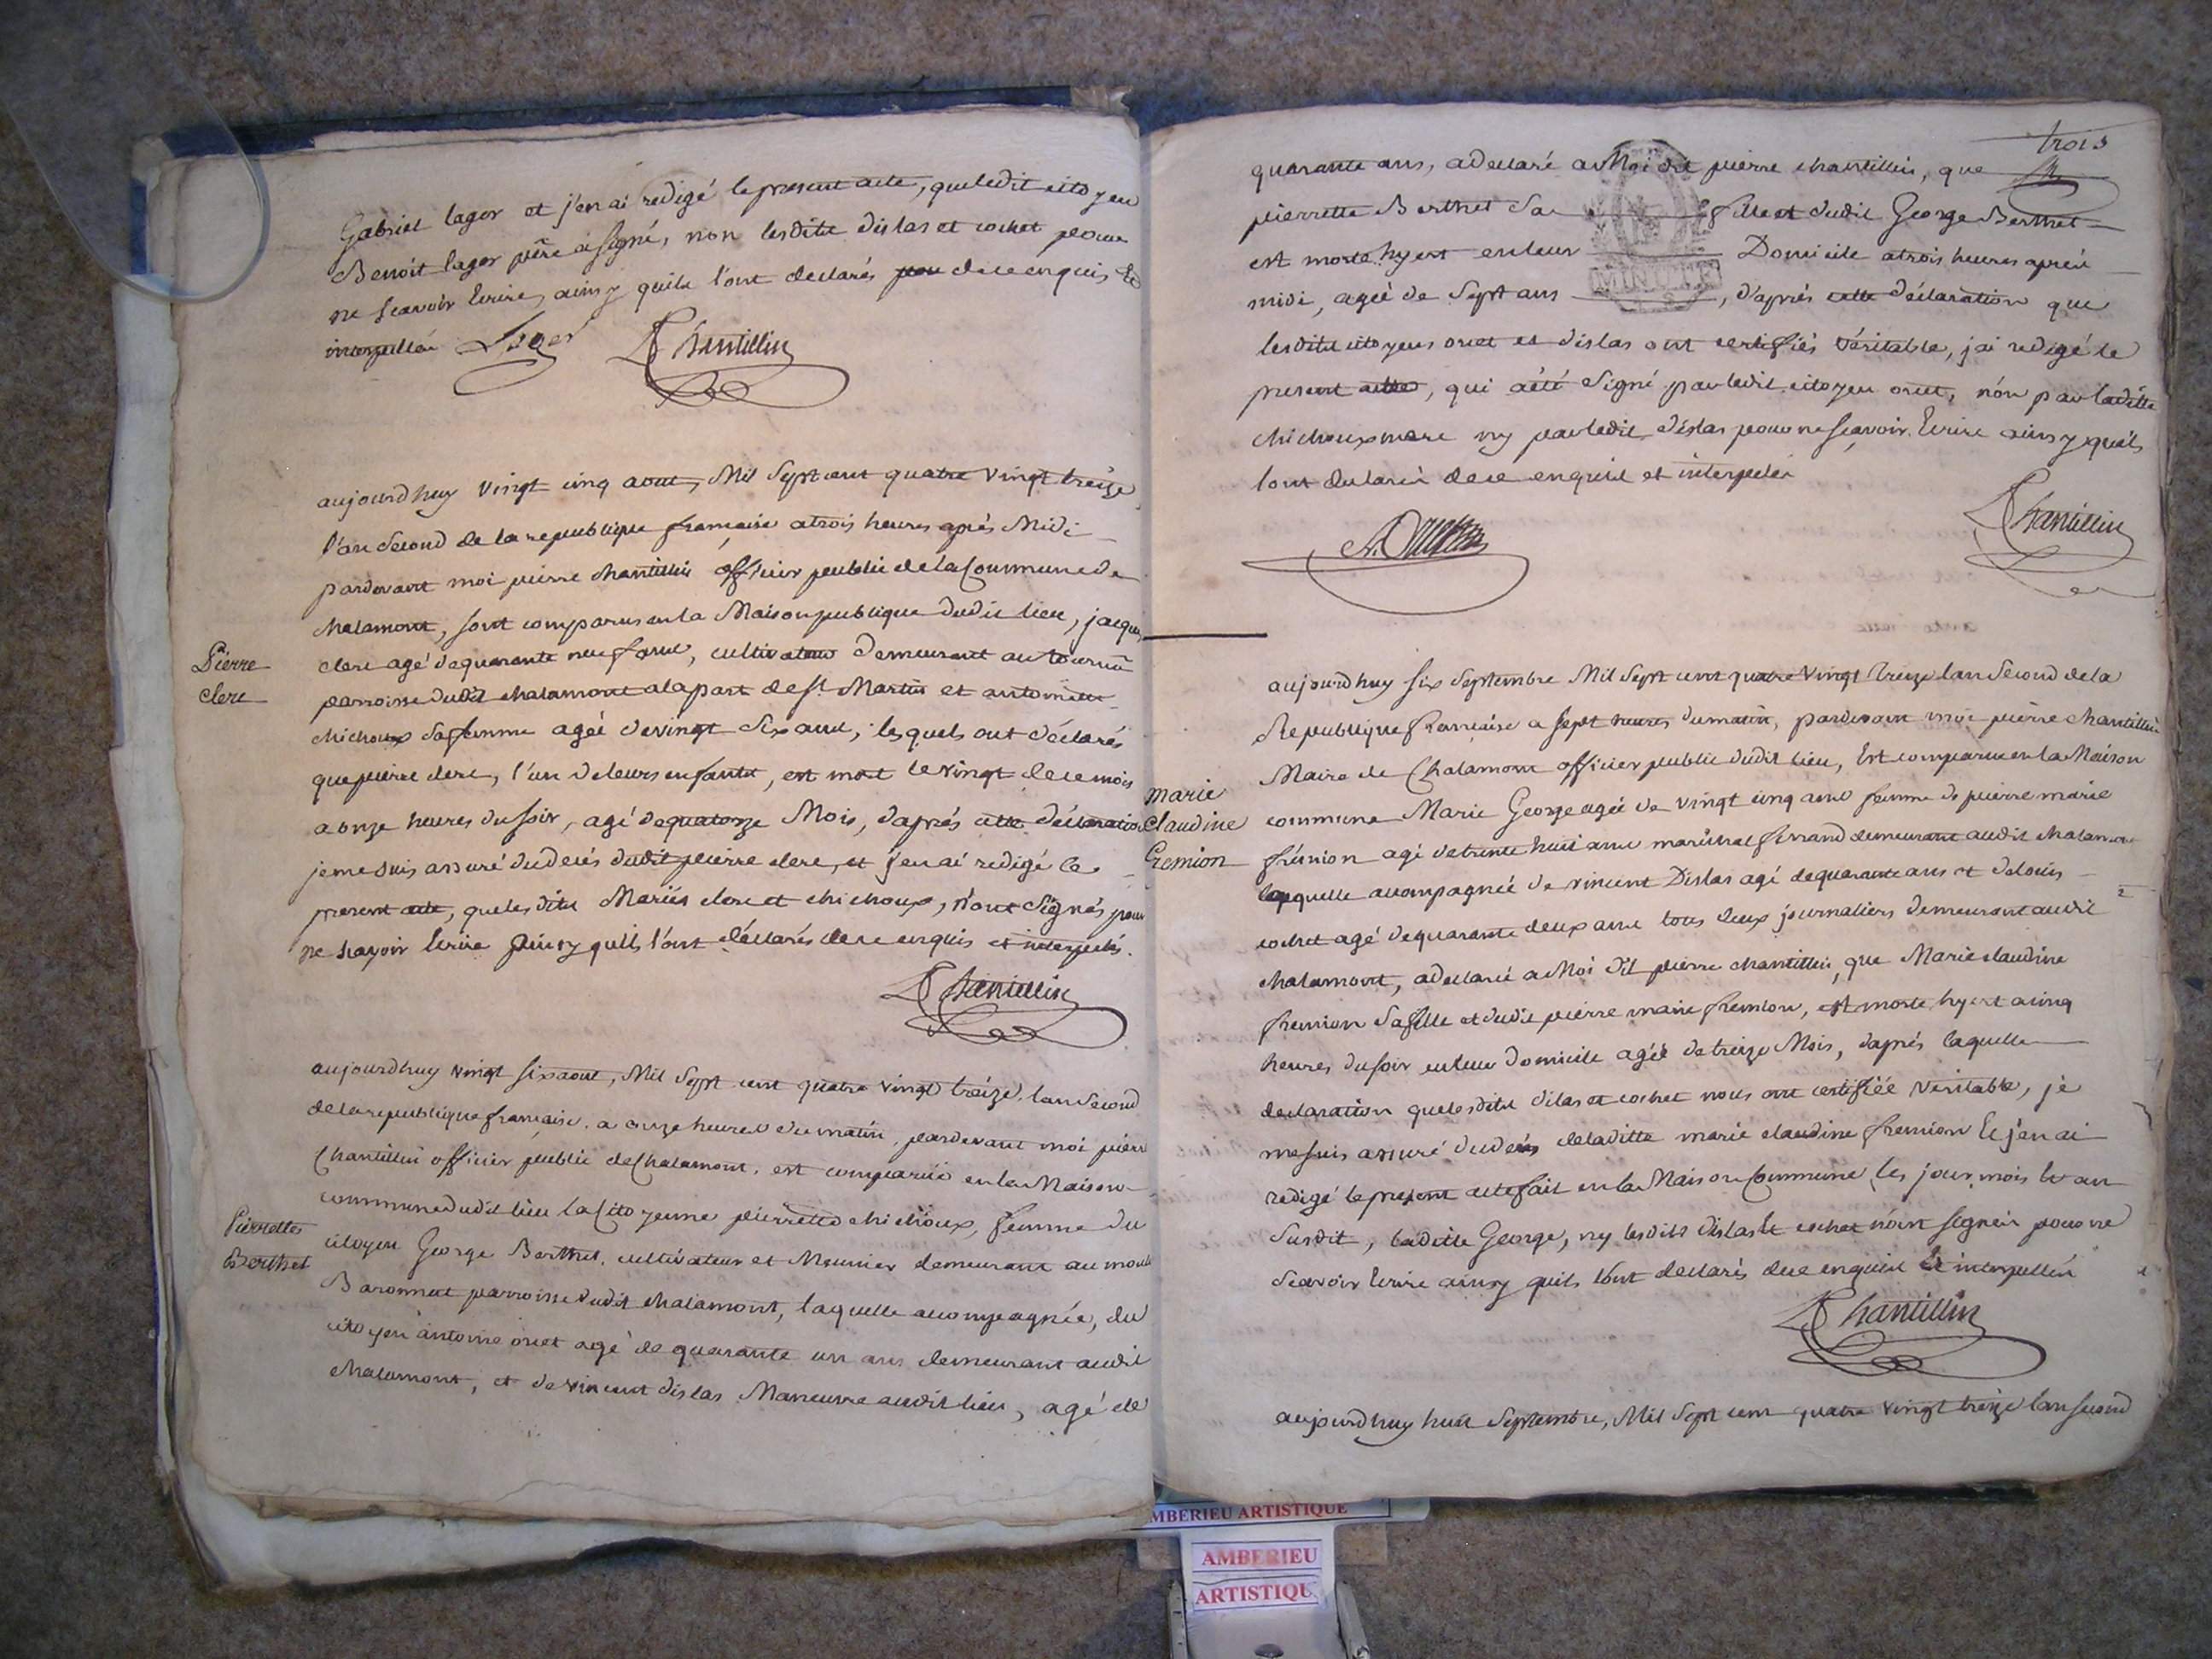 Gabriel lager et j'en ai redigé le present acte, que ledit citoyen
Benoit lager pere a signé, non lesdits dislas et cochet pour
ne scavoir Ecrire, ainsy quils l'ont declarés de ce enquis et
interpellés Lager P Chantillin
aujourdhuy vingt cinq aout, Mil Sept cent quatre vingt treize
l'an Second de la republique francaise a trois heures après Midi
pardevant moi pierre chantillin officier public de la Commune de
chalamont, sont comparus en la Maison publique dudit lieu, jacques
Pierre
clerc
clerc agé de quarante neuf ans, cultivateur demeurant au
parroisse dudit chalamont a la part de St Martin et antoinette
chichoux sa femme agée de vingt six ans, lesquels ont déclarés
que pierre clerc, l'un de leurs enfants, est mort le vingt de ce mois
a onze heures du soir, agé de quatorze Mois, d'aprés cette déclaration
je me suis assuré du decés dudit pierre clerc, et j'en ai redigé le
present acte, que lesdits Mariés clerc et chichoux, n'ont signés pour
ne scavoir Ecrire ainsy quils l'ont déclarés de ce enquis et interpelés.
P Chantillin
aujourdhuy vingt six aout, Mil Sept cent quatre vingt treize, lan Second
de la republique francaise, a onze heures du matin, pardevant moi pierre
Chantillin officier public de Chalamont, est comparüe en la Maison
commune dudit lieu la Citoyenne pierrette chichoux, femme du
Pierrette
Berthet
citoyen George Berthet, cultivateur et Meunier demeurant au moulin
Baronnat parroisse dudit chalamont, laquelle accompagnée, du
citoyen antoine oriet agé de quarante un ans demeurant audit
chalamont, et de vincent dislas Maneuvre audit lieu, agé de
trois
quarante ans, a declaré a Moi dit pierre chantillin, que
pierrette Berthet sa fille et dudit George Berthet
est morte hyert en leur Domicile a trois heures aprés
MINUTE
midi, agée de Sept ans, d'aprés cette déclaration que
lesdits citoyens oriet et dislas ont certifiés véritable, j'ai redigé le
present acte, qui a été Signé par ledit citoyen oriet, non par laditte
chichoux mere ny par ledit dislas pour ne sçavoir Ecrire ainsy quils
lont declarés de ce enquis et interpelés
P Chantillin
aujourdhuy six Septembre Mil Sept cent quatre vingt treize lan Second de la
Republique francaise a sept heures du matin, pardevant moi pierre chantillin
Maire de Chalamont officier public dudit lieu, Est comparue en la Maison
marie
claudine
fremion
commune Marie George agée de vingt cinq ans femme de pierre marie
frémion agé de trente huit ans maréchal ferrand demeurant audit chalamont
laquelle accompagnée de vincent Dislas agé de quarante ans et de louis
cochet agé de quarante deux ans tous deux journaliers demeurant audit
chalamont, a declaré a Moi dit pierre chantillin, que Marie claudine
fremion sa fille et dudit pierre marie fremion, est morte hyert a cinq
heures du soir en leur domicile agée de treize Mois, d'aprés laquelle
declaration que lesdits dilas et cochet nous ont certifiée véritable, je
me suis assuré du decés de laditte marie claudine fremion Et j'en ai
redigé le present acte fait en la Maison Commune les jour mois et an
Susdit, laditte George, ny lesdits dislas et cochet n'ont signés pour ne
Scavoir Ecrire ainsy quils l'ont declarés de ce enquis Et interpellés
P Chantillin
aujourdhuy huit Septembre, Mil Sept cent quatre vingt treize lan Second
AMBERIEU ARTISTIQUE
AMBERIEU
ARTISTIQU